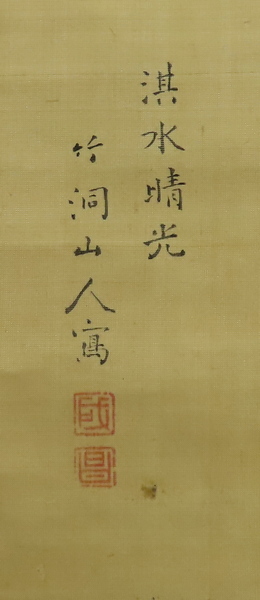 淇水晴光
竹洞山人寫
成昌